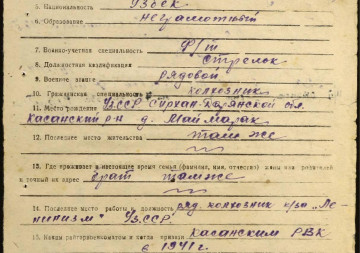 5. Национальность Узбек
6. Образование неграмотный
7. Военно-учетная специальность Ф/т
8. Должностная квалификация Стрелок
9. Военное звание рядовой
10. Гражданская специальность Колхозник
11. Место рождения УзССР Сурхан-Дарьинской обл.
Хасанский р-н д. Май Марак
12. Последнее место жительства там же
13. Где проживает в настоящее время семья (фамилия, имя, отчество) жены или родителей
и точный их адрес брат там же
14. Последнее место работы и должность ряд. колхозник к/за „Ле-
нинизм" УзССР
15. Каким райвоенкоматом и когда призван Хасанским РВК
в 1941 г.